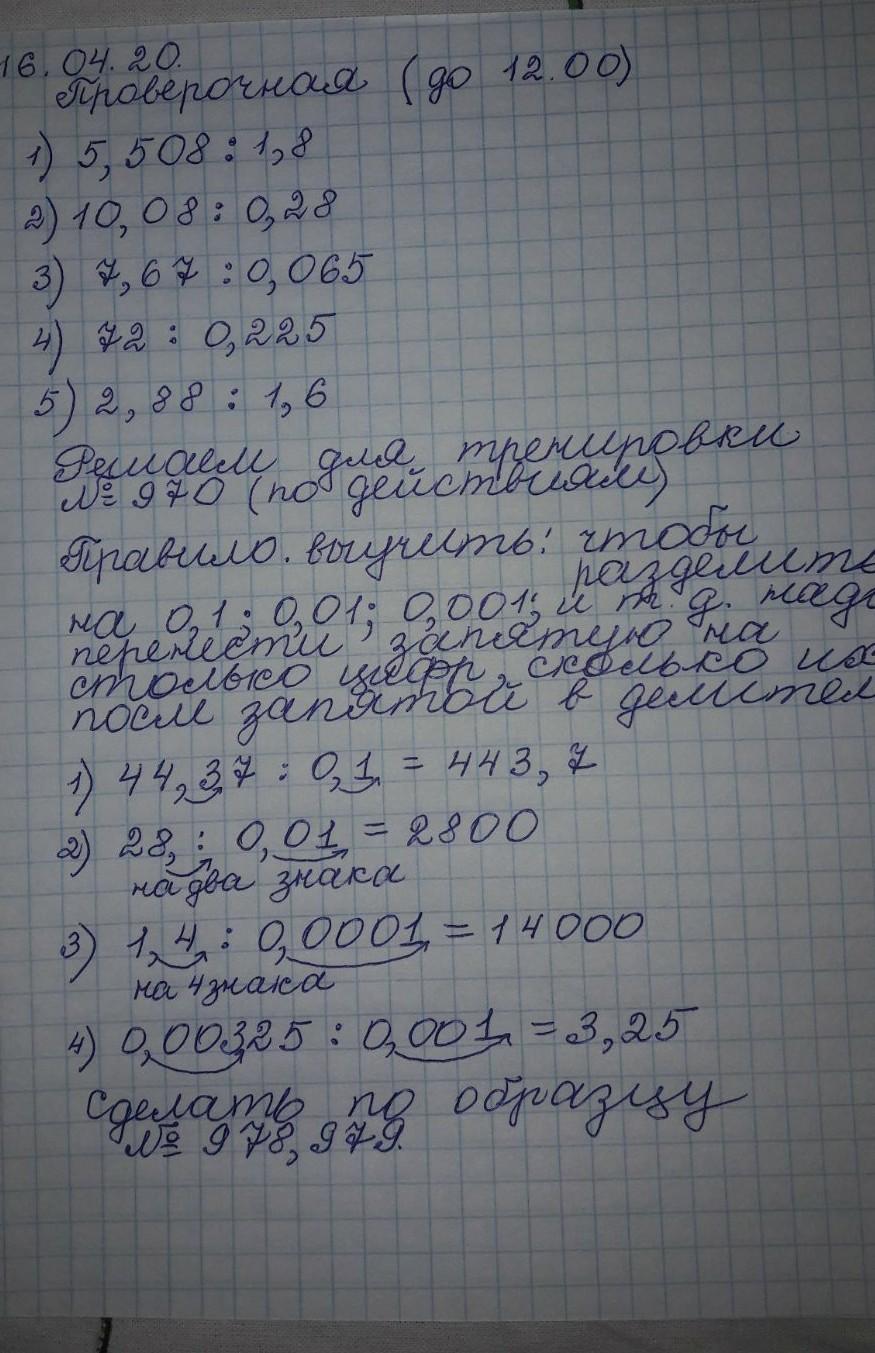 16.04.20.
Проверочная (до 12.00)
1) 5,508 : 1,8
2) 10,08 : 0,28
3) 7,67 : 0,065
4) 72 : 0,225
5) 2,88 : 1,6
Решаем для тренировки
№ 970 (по действиям)
Правило. выучить: чтобы
разделить
на 0,1; 0,01; 0,001; и т.д. надо
перенести запятую на
столько цифр, сколько их
после запятой в делителе
1) 44,37 : 0,1 = 443,7
2) 28, : 0,01 = 2800
на два знака
3) 1,4 : 0,0001 = 14000
на 4 знака
4) 0,00325 : 0,001 = 3,25
Сделать по образцу
№ 978, 979.